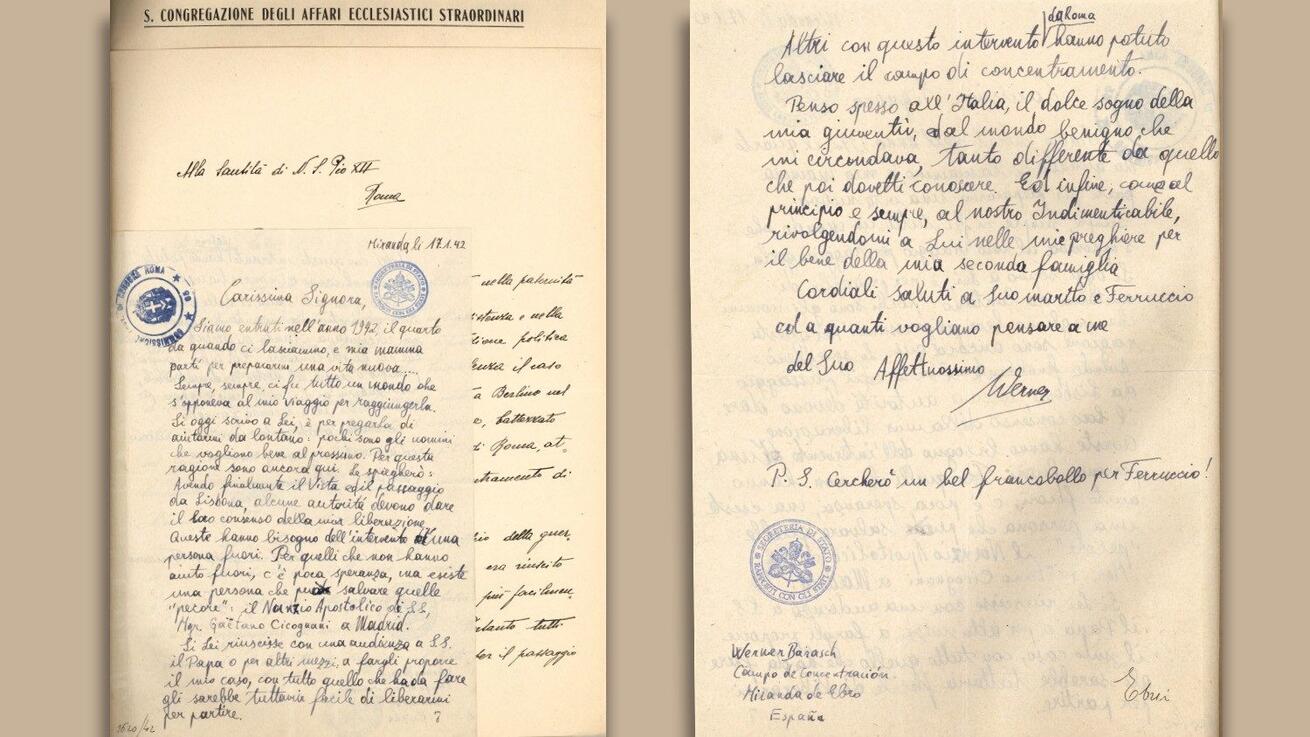 S. CONGREGAZIONE DEGLI AFFARI ECCLESIASTICI STRAORDINARI
Alla Santità di N. S. Pio XII
Roma
Miranda li 17.1.42
Carissima Signora,
Siamo entrati nell'anno 1942, il quarto
da quando ci lasciammo, e mia mamma
partì per prepararmi una vita nuova....
Sempre, sempre, ci fu tutto un mondo che
s'opponeva al mio viaggio per raggiungerla.
Si oggi scrivo a Lei, è per pregarla di
aiutarmi da lontano: pochi sono gli uomini
che vogliono bene al prossimo. Per questa
ragione sono ancora qui. Le spiegherò:
Avendo finalmente il Vista ed il passaggio
da Lisbona, alcune autorità devono dare
il loro consenso della mia liberazione.
Queste hanno bisogno dell'intervento di una
persona fuori. Per quelli che non hanno
aiuto fuori, c'è poca speranza, ma esiste
una persona che può salvare quelle
"pecore": il Nunzio Apostolico di SS,
Mgr. Gaetano Cicognani a Madrid.
Si Lei riuscisse con una audienza a S.S.
il Papa o per altri mezzi, a fargli proporre
il mio caso, con tutto quello che ha da fare
gli sarebbe tuttavia facile di liberarmi
per partire.
3620/42
nella paternità
stenza e nella
zione politica
enza il caso
a Berlino nel
o, battezzato
di Roma, at-
ntramento di
io della guer.
era riuscito
più facilmen.
tanto tutti
per il passaggio
Altri con questo intervento da Roma hanno potuto
lasciare il campo di concentramento.
Penso spesso all'Italia, il dolce sogno della
mia gioventù, dal mondo benigno che
mi circondava, tanto differente da quello
che poi dovetti conoscere. Ed infine, come al
principio e sempre, al nostro Indimenticabile,
rivolgendomi a Lui nelle mie preghiere per
il bene della mia seconda famiglia
Cordiali saluti a Suo marito e Ferruccio
ed a quanti vogliano pensare a me
del Suo Affettuosissimo
Werner
P. S. Cercherò un bel francobollo per Ferruccio!
SEGRETERIA DI STATO
Werner Barasch
Campo de Concentración
Miranda de Ebro
España
Ebrei